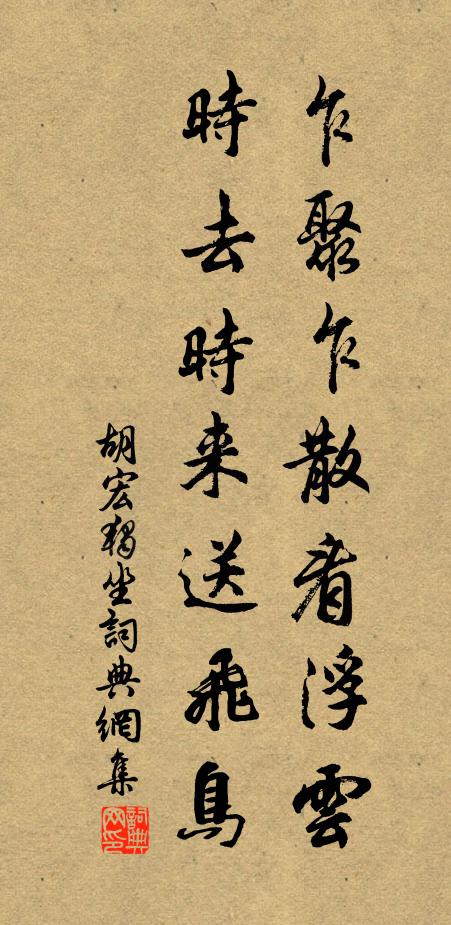 乍聚乍散看浮雲
時去時来送飛鳥
胡宏獨坐詞典網集
詞典
网印